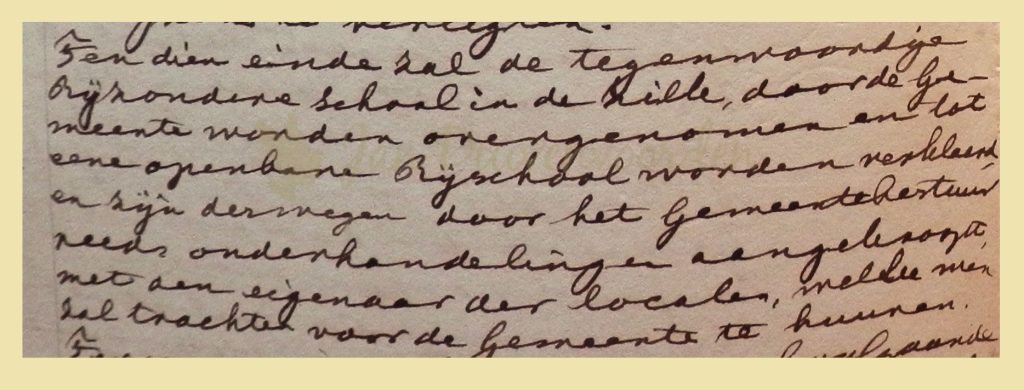 verleggen.
Ten dien einde zal de tegenwoordije
Byzondere school in de Kille, door de Ge-
meente worden overgenomen en tot
eene openbare Byschool worden verklaard
en zijn derwegen door het Gemeentebestuur
reeds onderhandelingen aangeknoopt,
met den eigenaar der localen, welke men
zal trachten voor de Gemeente te huuren.